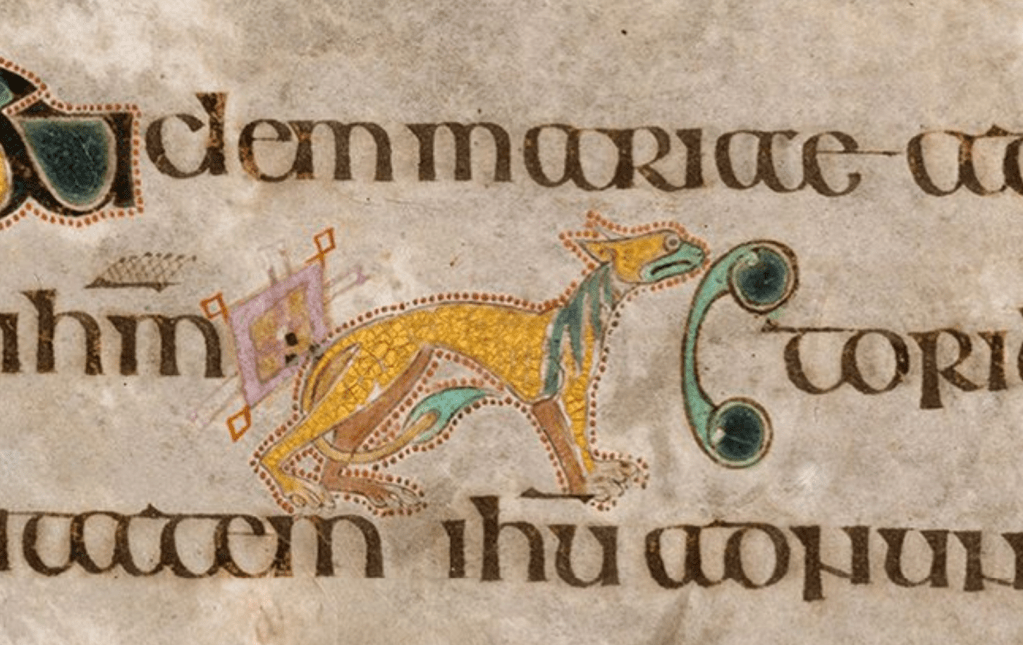 dem mariae
ihm̅ C tori
tatem ihu̅ adnun